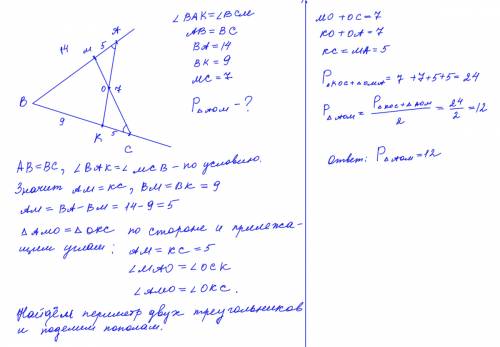 A
14
M
5
O
7
B
9
K
5
C
∠BAK=∠BCM
AB=BC
BA=14
BK=9
MC=7
P△AOM-?
AB=BC, ∠BAK=∠MCB - по условию.
Значит AM=KC, BM=BK=9
AM=BA-BM=14-9=5
△AMO=△OKC по стороне и прилежа-
щим углам: AM=KC=5
∠MAO=∠OCK
∠AMO=∠OKC.
Найдём периметр двух треугольников
и поделим пополам.
MO+OC=7
KO+OA=7
KC=MA=5
P△KOC+△OMA=7+7+5+5=24
P△AOM=P△KOC+△AOM/2=24/2=12
Ответ: P△AOM=12